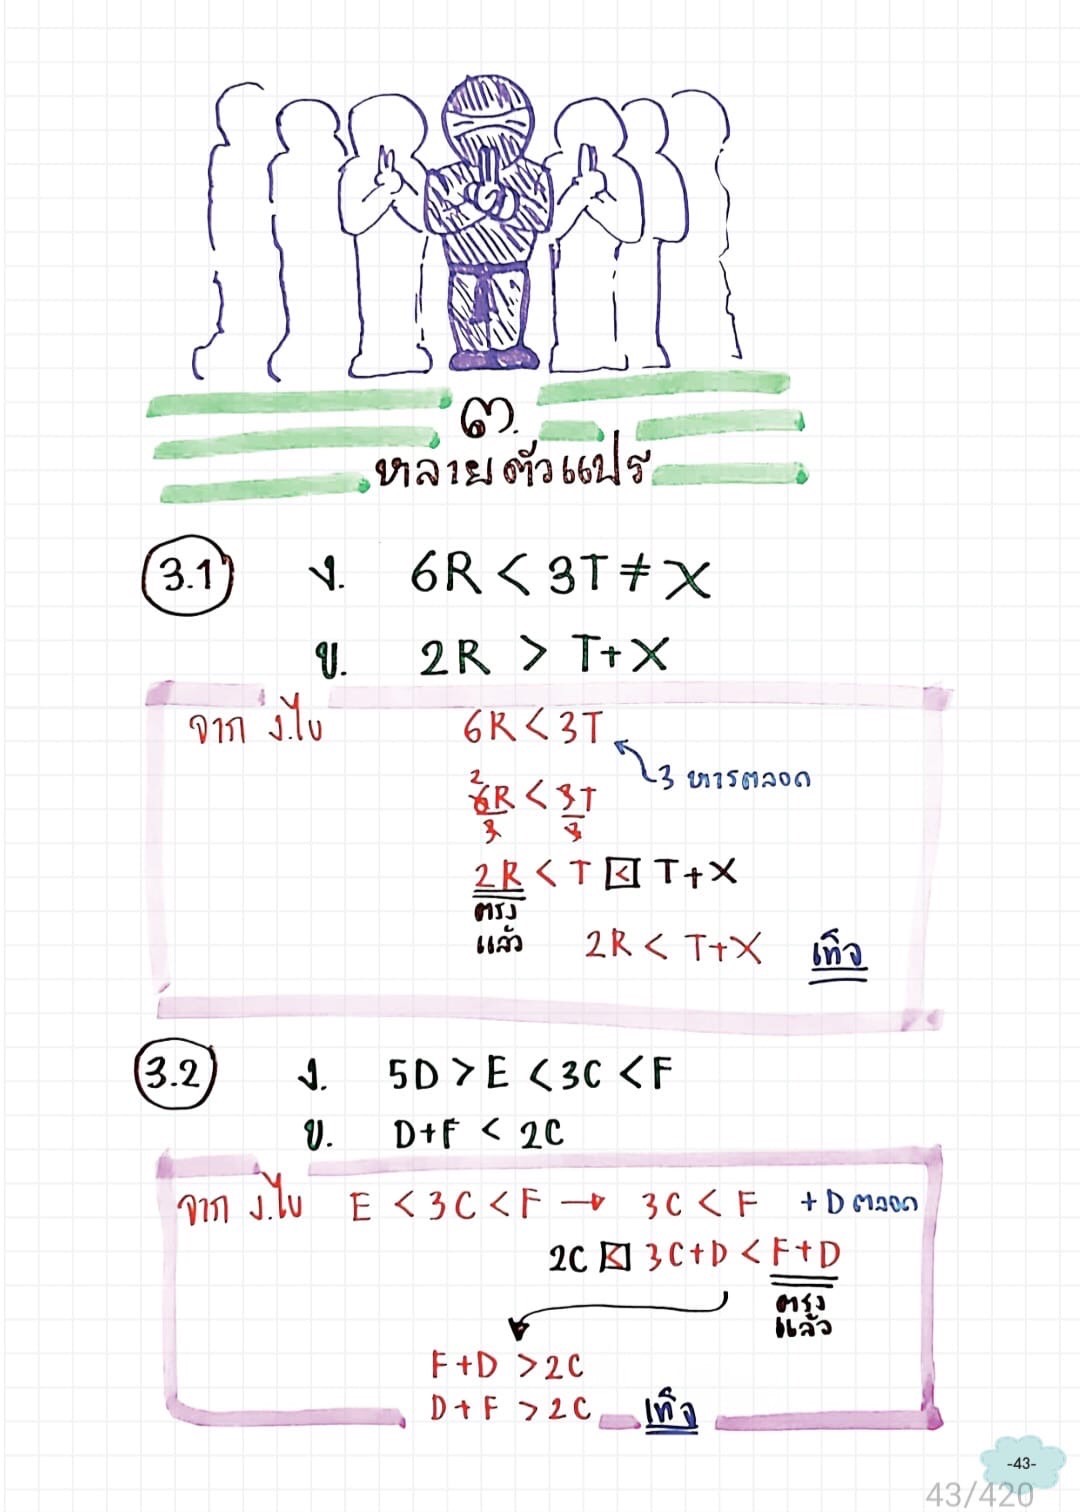 ๓.
หลายตัวแปร
3.1 ง. 6R < 3T ≠ X
ข. 2R > T+X
จาก ง.ไข 6R < 3T
3 หารตลอด
2
6R < 3T
3 3
2R < T < T+X
ตรง
แล้ว 2R < T+X เท็จ
3.2 ง. 5D > E < 3C < F
ข. D+F < 2C
จาก ง.ไข E < 3C < F → 3C < F +D ตลอด
2C < 3C+D < F+D
ตรง
แล้ว
F+D > 2C
D+F > 2C เท็จ
-43-
43/420